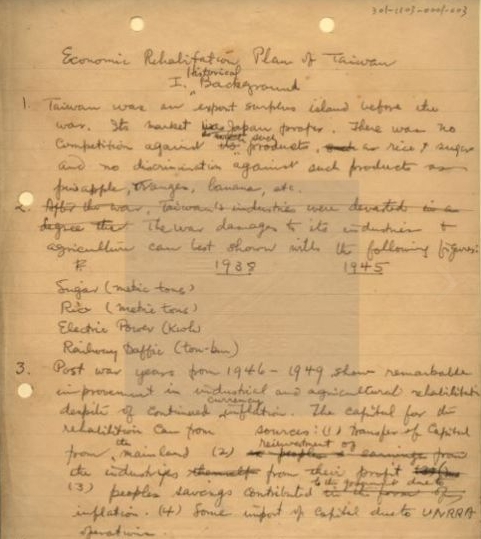 301-1803-0001-003
Economic Rehabilitation Plan of Taiwan
Historical
I. Background
1. Taiwan was an export surplus island before the
war. Its market was Japan proper. There was no
competition against its such products, such as rice & sugar
and no discrimination against such products as
pineapple, oranges, banana, etc.
2. After the war, Taiwan's industries were devasted in a
degree that The war damages to its industries &
agriculture can best shown with the following figures:
1938 1945
Sugar (metric tons)
Rice (metric tons)
Electric Power (Kwh)
Railway Traffic (ton-km)
3. Post war years from 1946 - 1949 show remarkable
improvement in industrial and agricultural rehabilitation
currency
despite of continued inflation. The capital for the
rehabilitation came from sources: (1) Transfer of Capital
the reinvestment of
from mainland (2) earnings from
the industries themselves from their profit
to the government due to
(3) peoples savings contributed in the form of
inflation. (4) Some import of Capital due to UNRRA
operations.